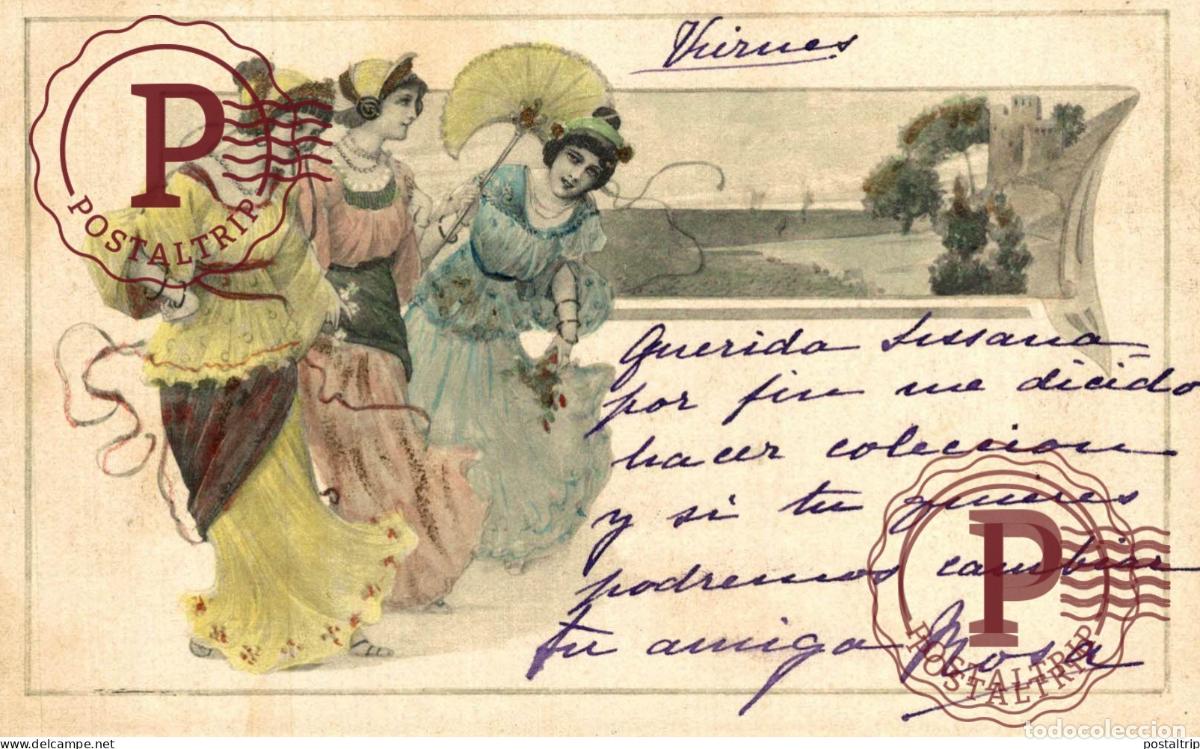 Viernes
Querida Sussana
por fin me dicido
hacer coleccion
y si tu quieres
podremos cambiar
tu amiga Rosa
P
POSTALTRIP
P
POSTALTRIP
POSTALTRIP
todocoleccion
www.delcampe.net
postaltrip